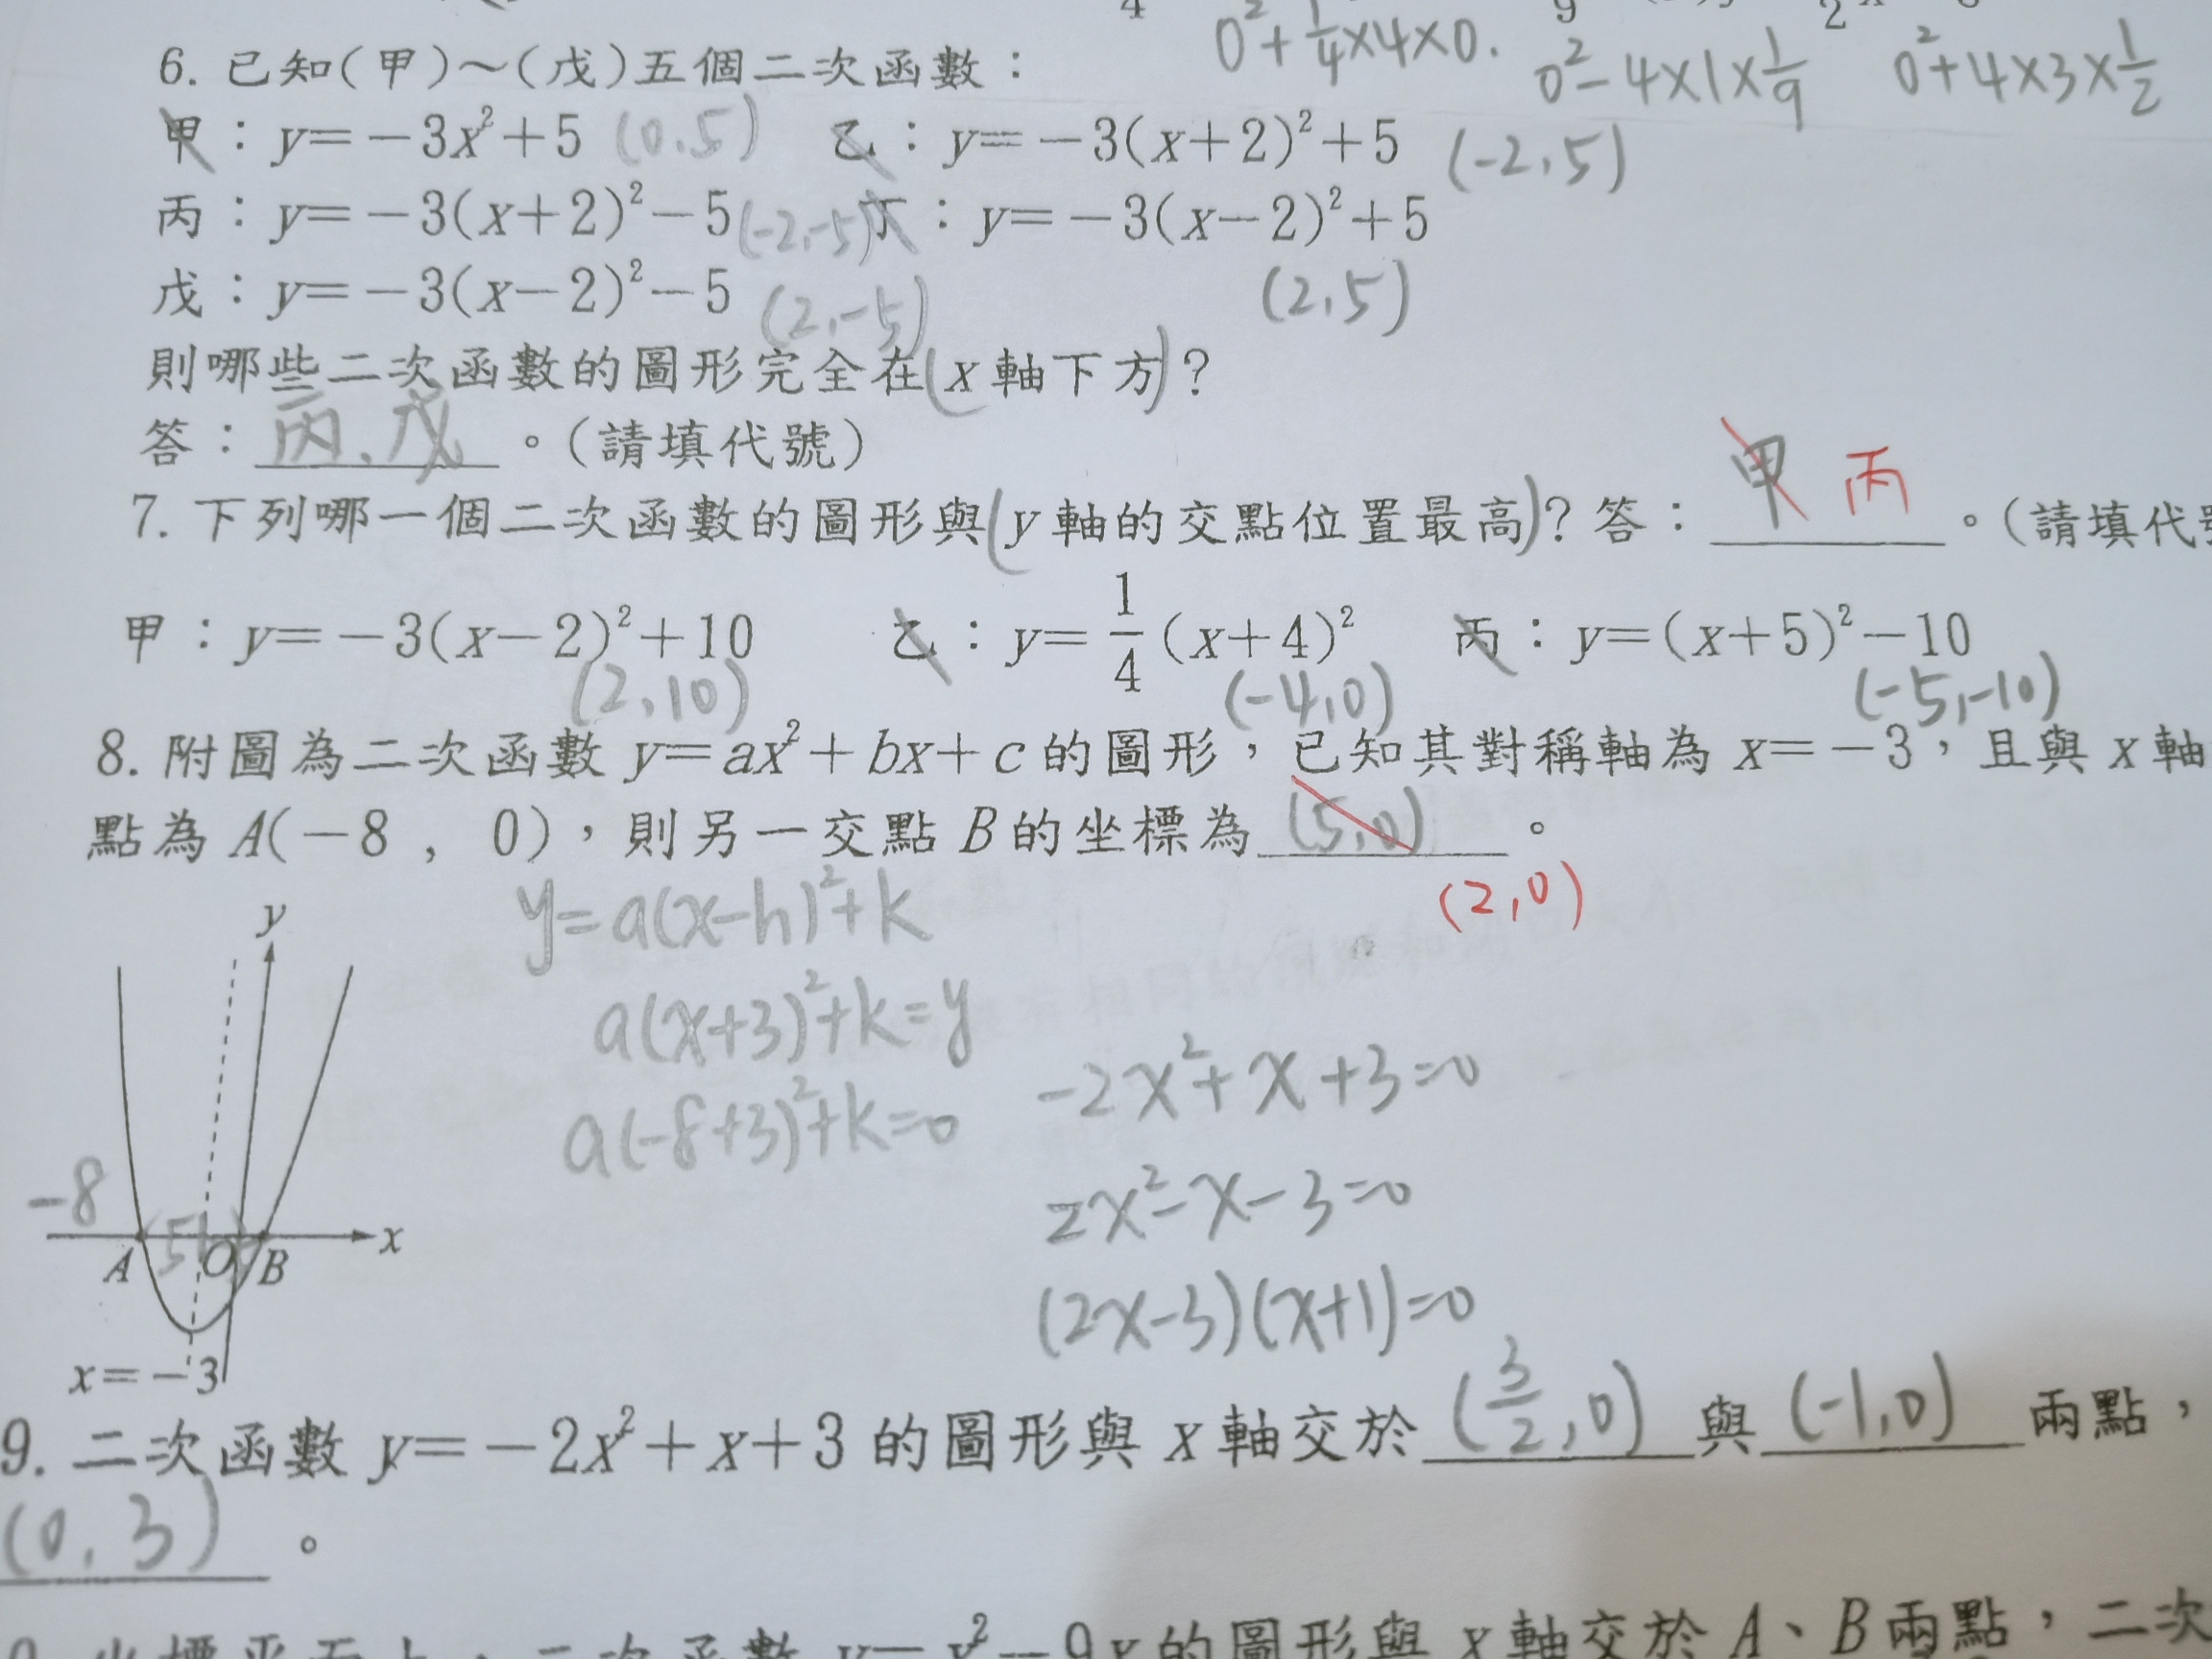 0²+1/4×4×0.
0²-4×1×1/9
0²+4×3×1/2
6. 已知(甲)～(戊)五個二次函數：
甲：y=-3x²+5 (0.5) 乙：y=-3(x+2)²+5 (-2,5)
丙：y=-3(x+2)²-5 (-2,-5) 丁：y=-3(x-2)²+5
戊：y=-3(x-2)²-5 (2,-5) (2,5)
則哪些二次函數的圖形完全在(x軸下方)？
答：丙、戊。(請填代號)
7. 下列哪一個二次函數的圖形與(y軸的交點位置最高)？答：甲 丙。(請填代號
甲：y=-3(x-2)²+10 乙：y=1/4(x+4)² 丙：y=(x+5)²-10
(2,10) (-4,0) (-5,-10)
8. 附圖為二次函數 y=ax²+bx+c 的圖形，已知其對稱軸為 x=-3，且與 x 軸
點為 A(-8 , 0)，則另一交點 B 的坐標為 (5,0)。
(2,0)
y=a(x-h)²+k
a(x+3)²+k=y
a(-8+3)²+k=0
y
-8
A
5
O
B
x
x=-3
-2x²+x+3=0
2x²-x-3=0
(2x-3)(x+1)=0
9. 二次函數 y=-2x²+x+3 的圖形與 x 軸交於 (3/2,0) 與 (-1,0) 兩點，
(0,3)。
坐標平面上，二次函數 y=x²-9x 的圖形與 x 軸交於 A、B 兩點，二次